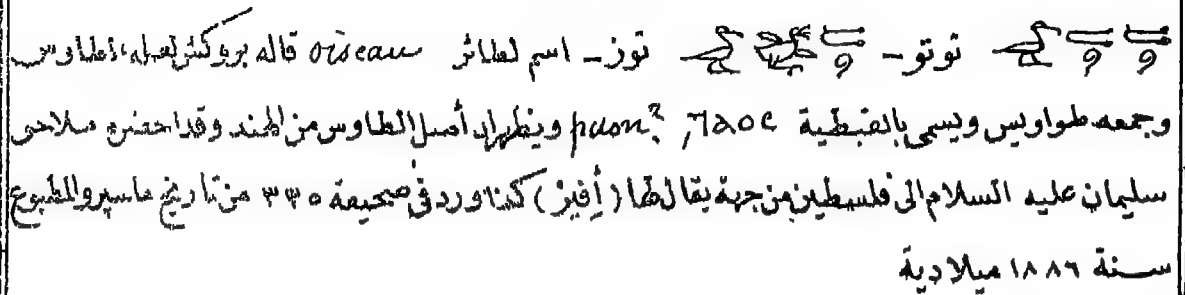 توتو - توز - اسم لطائر oiseau قاله بروكش لعله الطاوس
وجمعه طواويس ويسمى بالقبطية ⲧⲁⲟⲥ, paon? ويظهر ان أصل الطاوس من الهند وقد احضره ملاحى
سليمان عليه السلام الى فلسطين من جهة يقال لها (أفيز) كما ورد فى صحيفة ٣٣٥ من تاريخ ماسپرو المطبوع
سنة ١٨٨٦ ميلادية